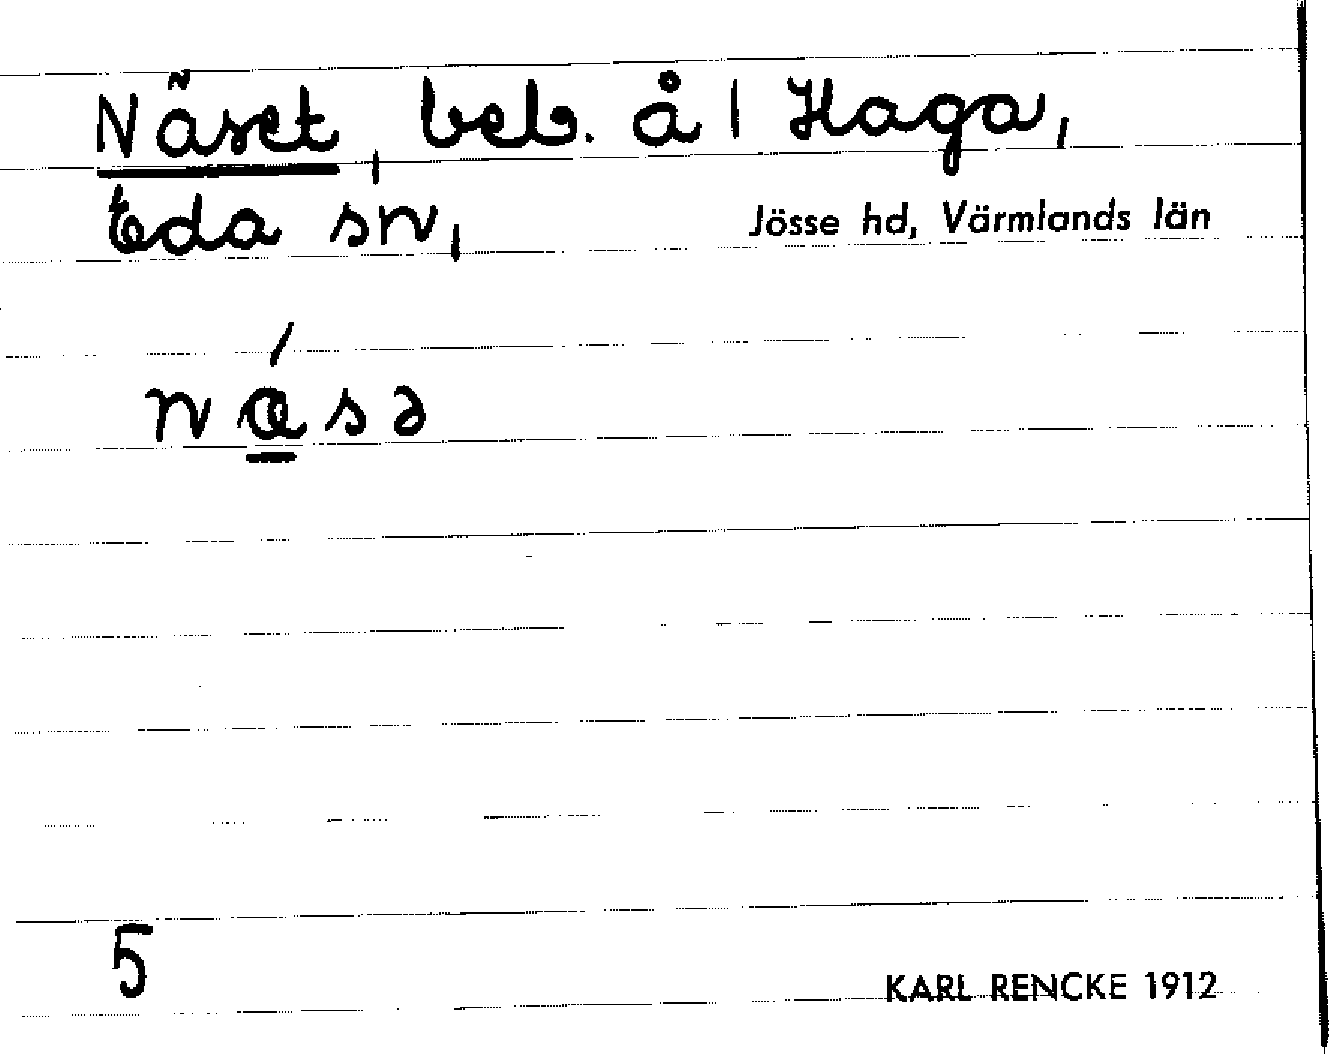 Näset, beb. å 1 Haga,
Eda sn, Jösse hd, Värmlands län
nǽsə
5
KARL RENCKE 1912